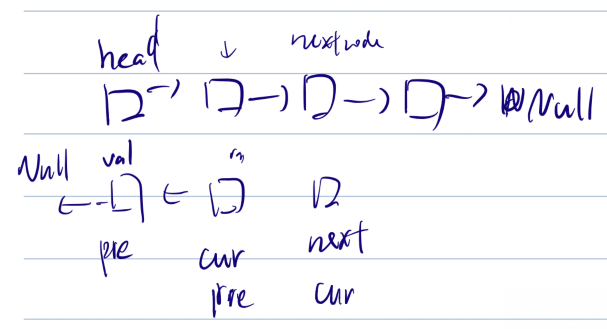 head ↓ nextnode
→ → → → Null
Null val
← ←
pre cur next
pre cur